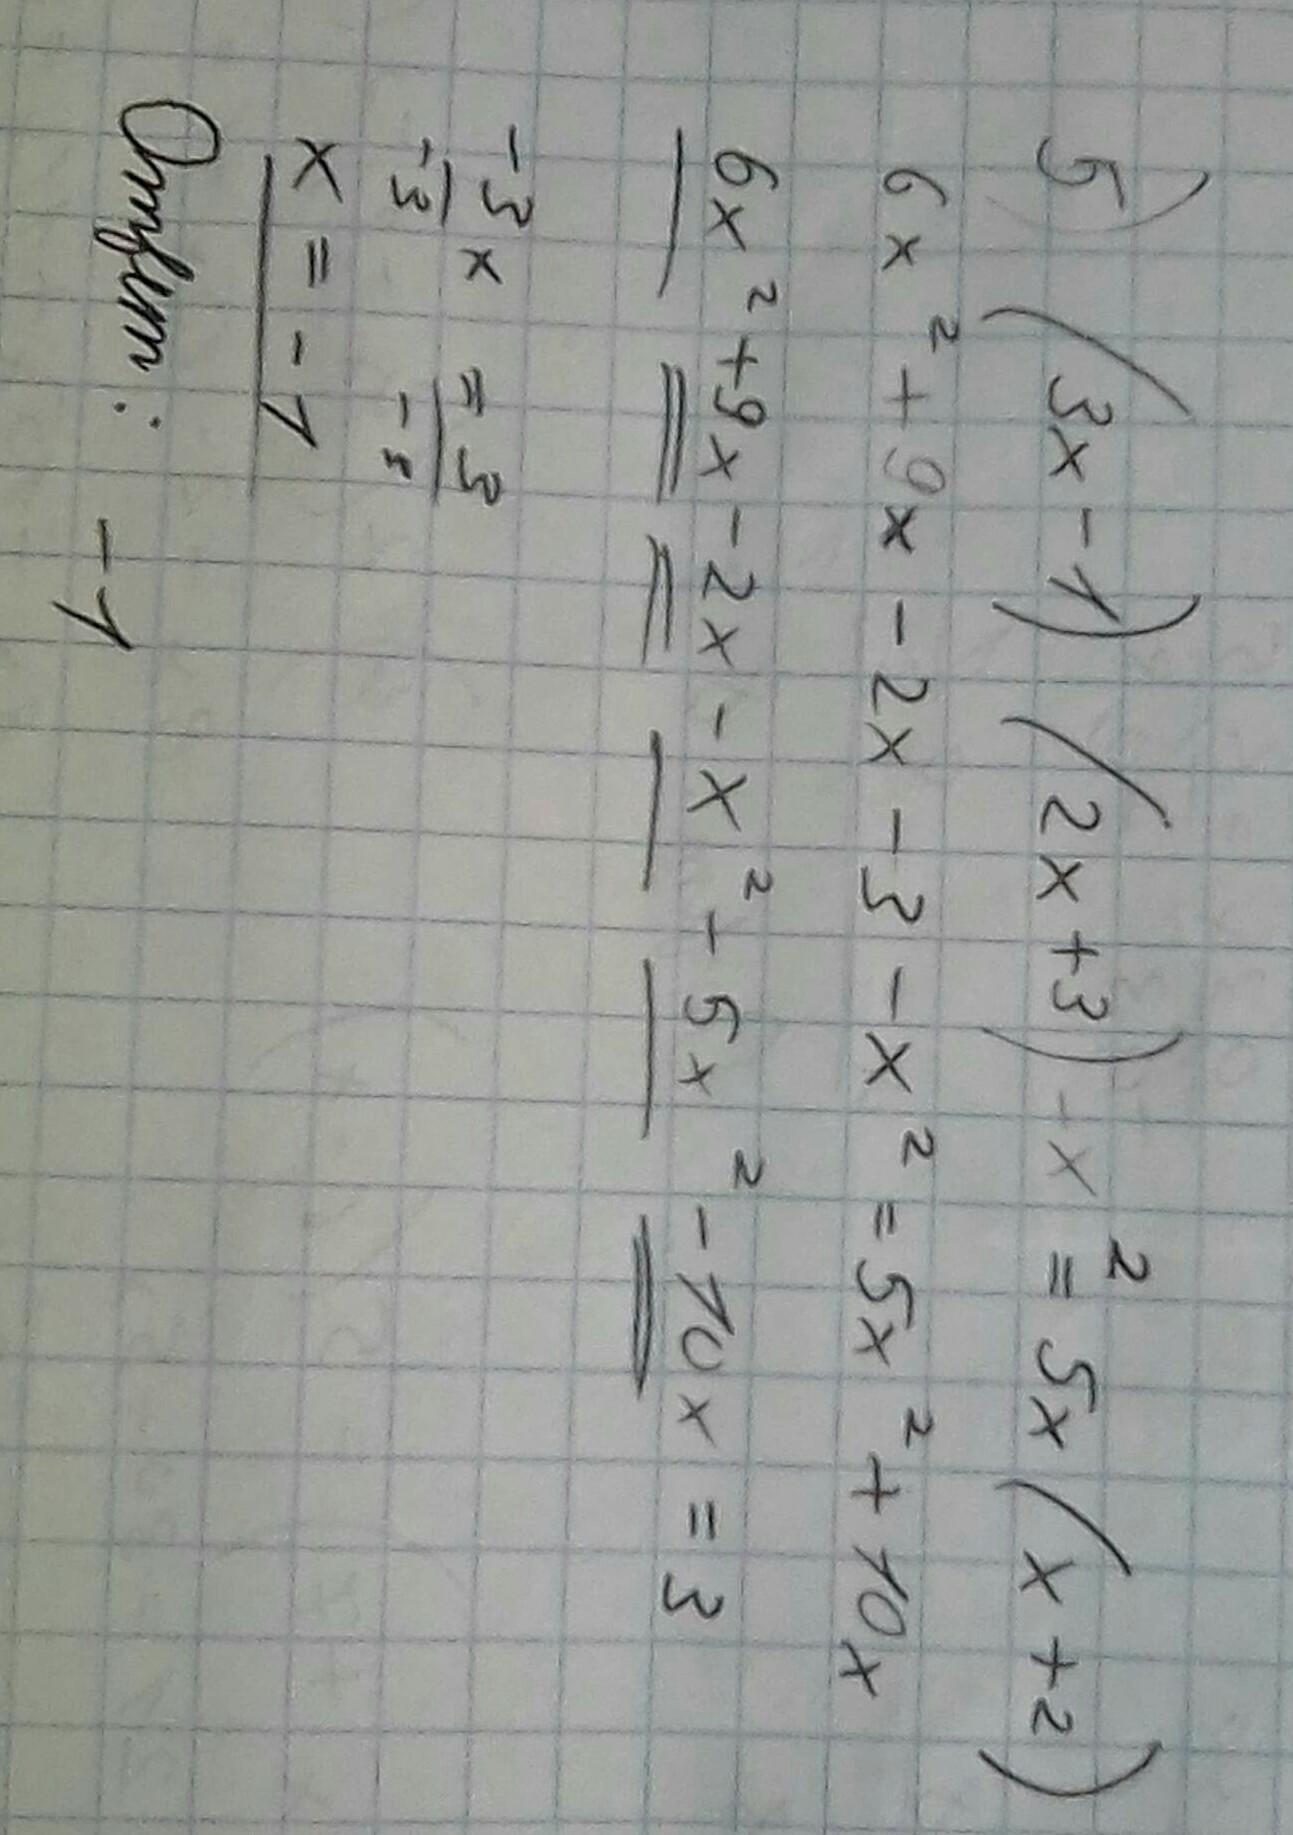 5) (3x - 1) (2x + 3) - x² = 5x (x + 2)
6x² + 9x - 2x - 3 - x² = 5x² + 10x
6x² + 9x - 2x - x² - 5x² - 10x = 3
-3x = 3
-3 -3
x = -1
Ответ: -1